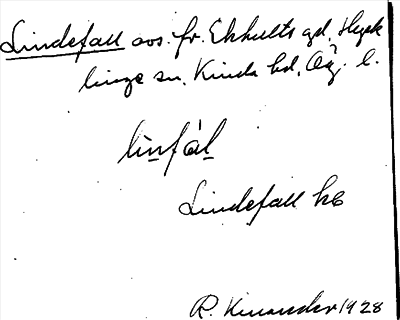 Lindefall avs. fr. Ekhults gd, Hyck
linge sn. Kinda hd, Ög. l.
linfàl
Lindefall hé
R. Kinander 1928